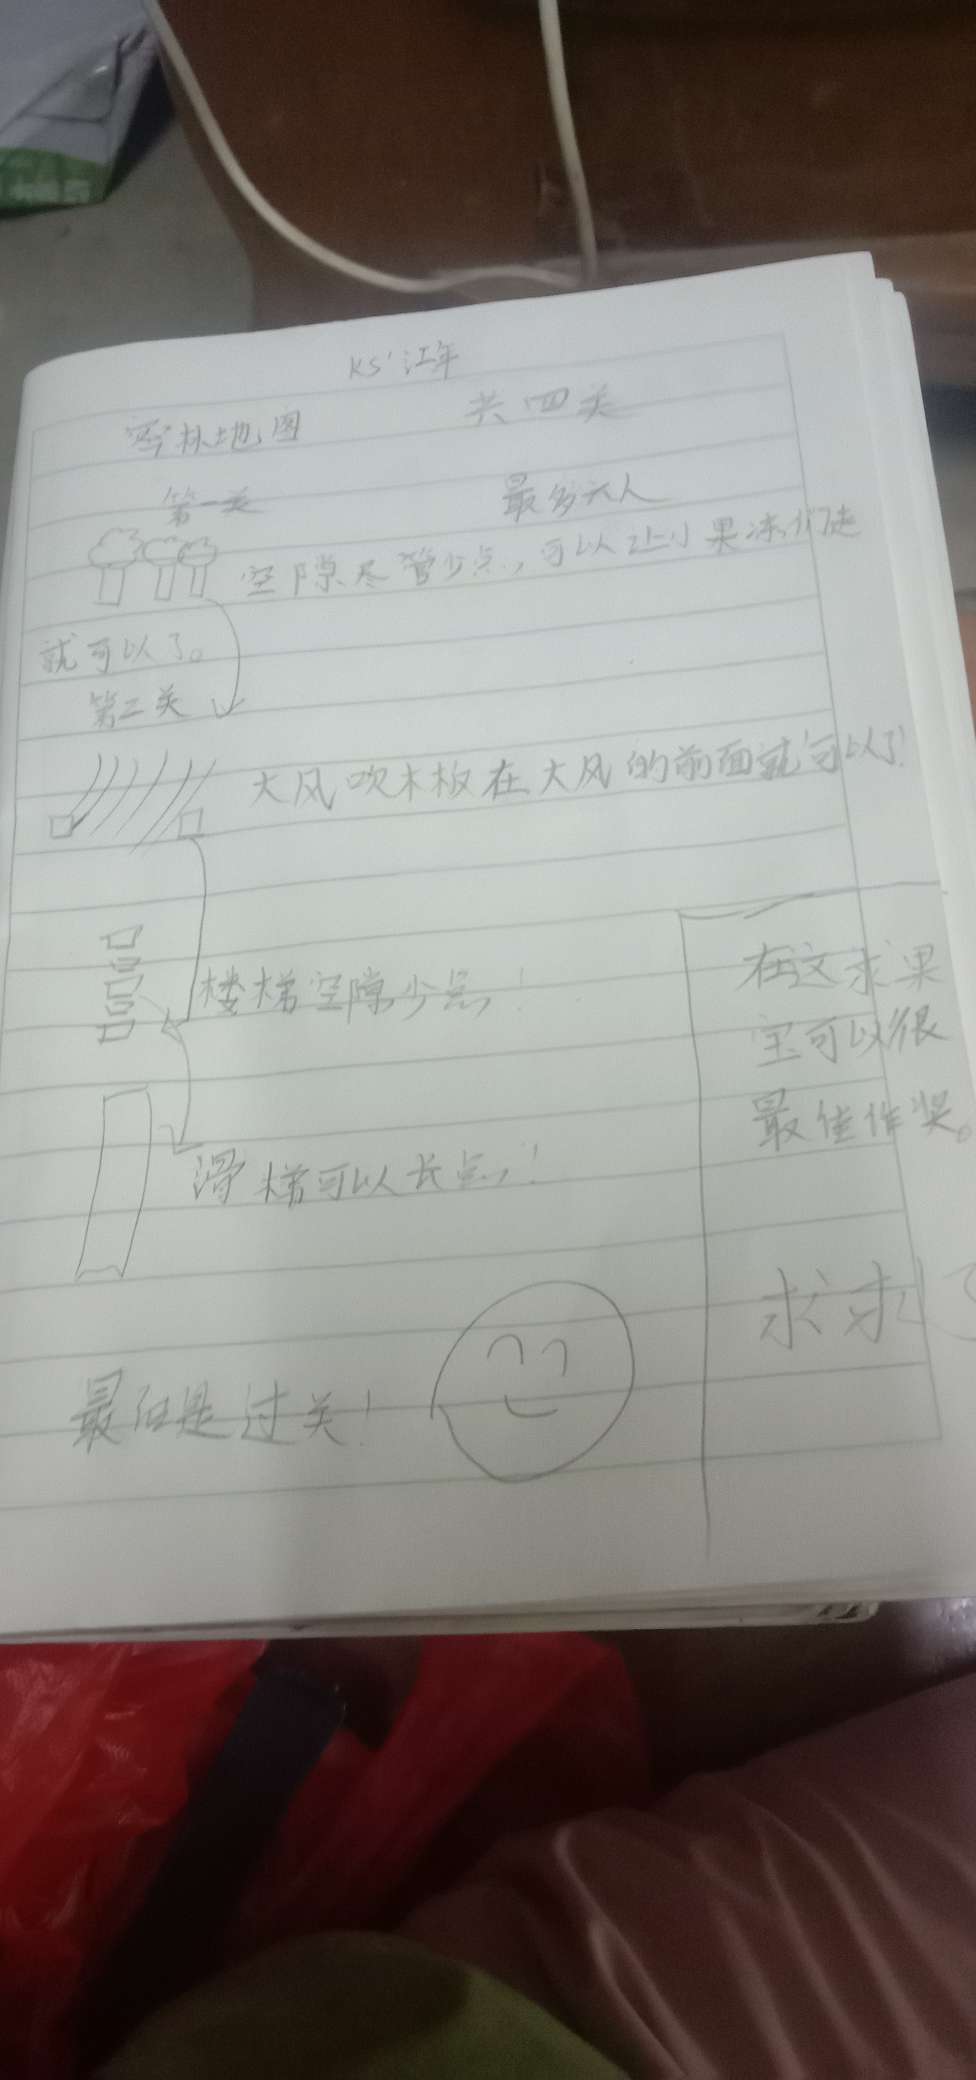 KS:江年
雪林地图 共四关
第一关 最多六人
空隙尽管少点,可以让小果冻们走
就可以了。
第二关
大风吹木板在大风的前面就可以了!
楼梯空隙少点!
滑梯可以长点!
最后是过关!
在这求果
宝可以很
最佳作奖。
求求了